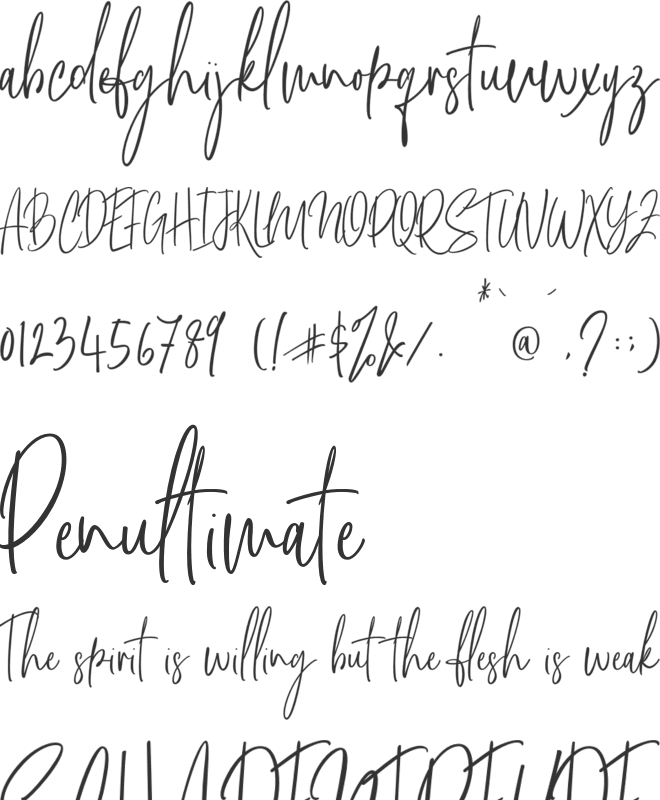 abcdefghijklmnopqrstuvwxyz
ABCDEFGHIJKLMNOPQRSTUVWXYZ
0123456789 (!#$%&/. *` ´ @ ,?:;)
Penultimate
The spirit is willing but the flesh is weak